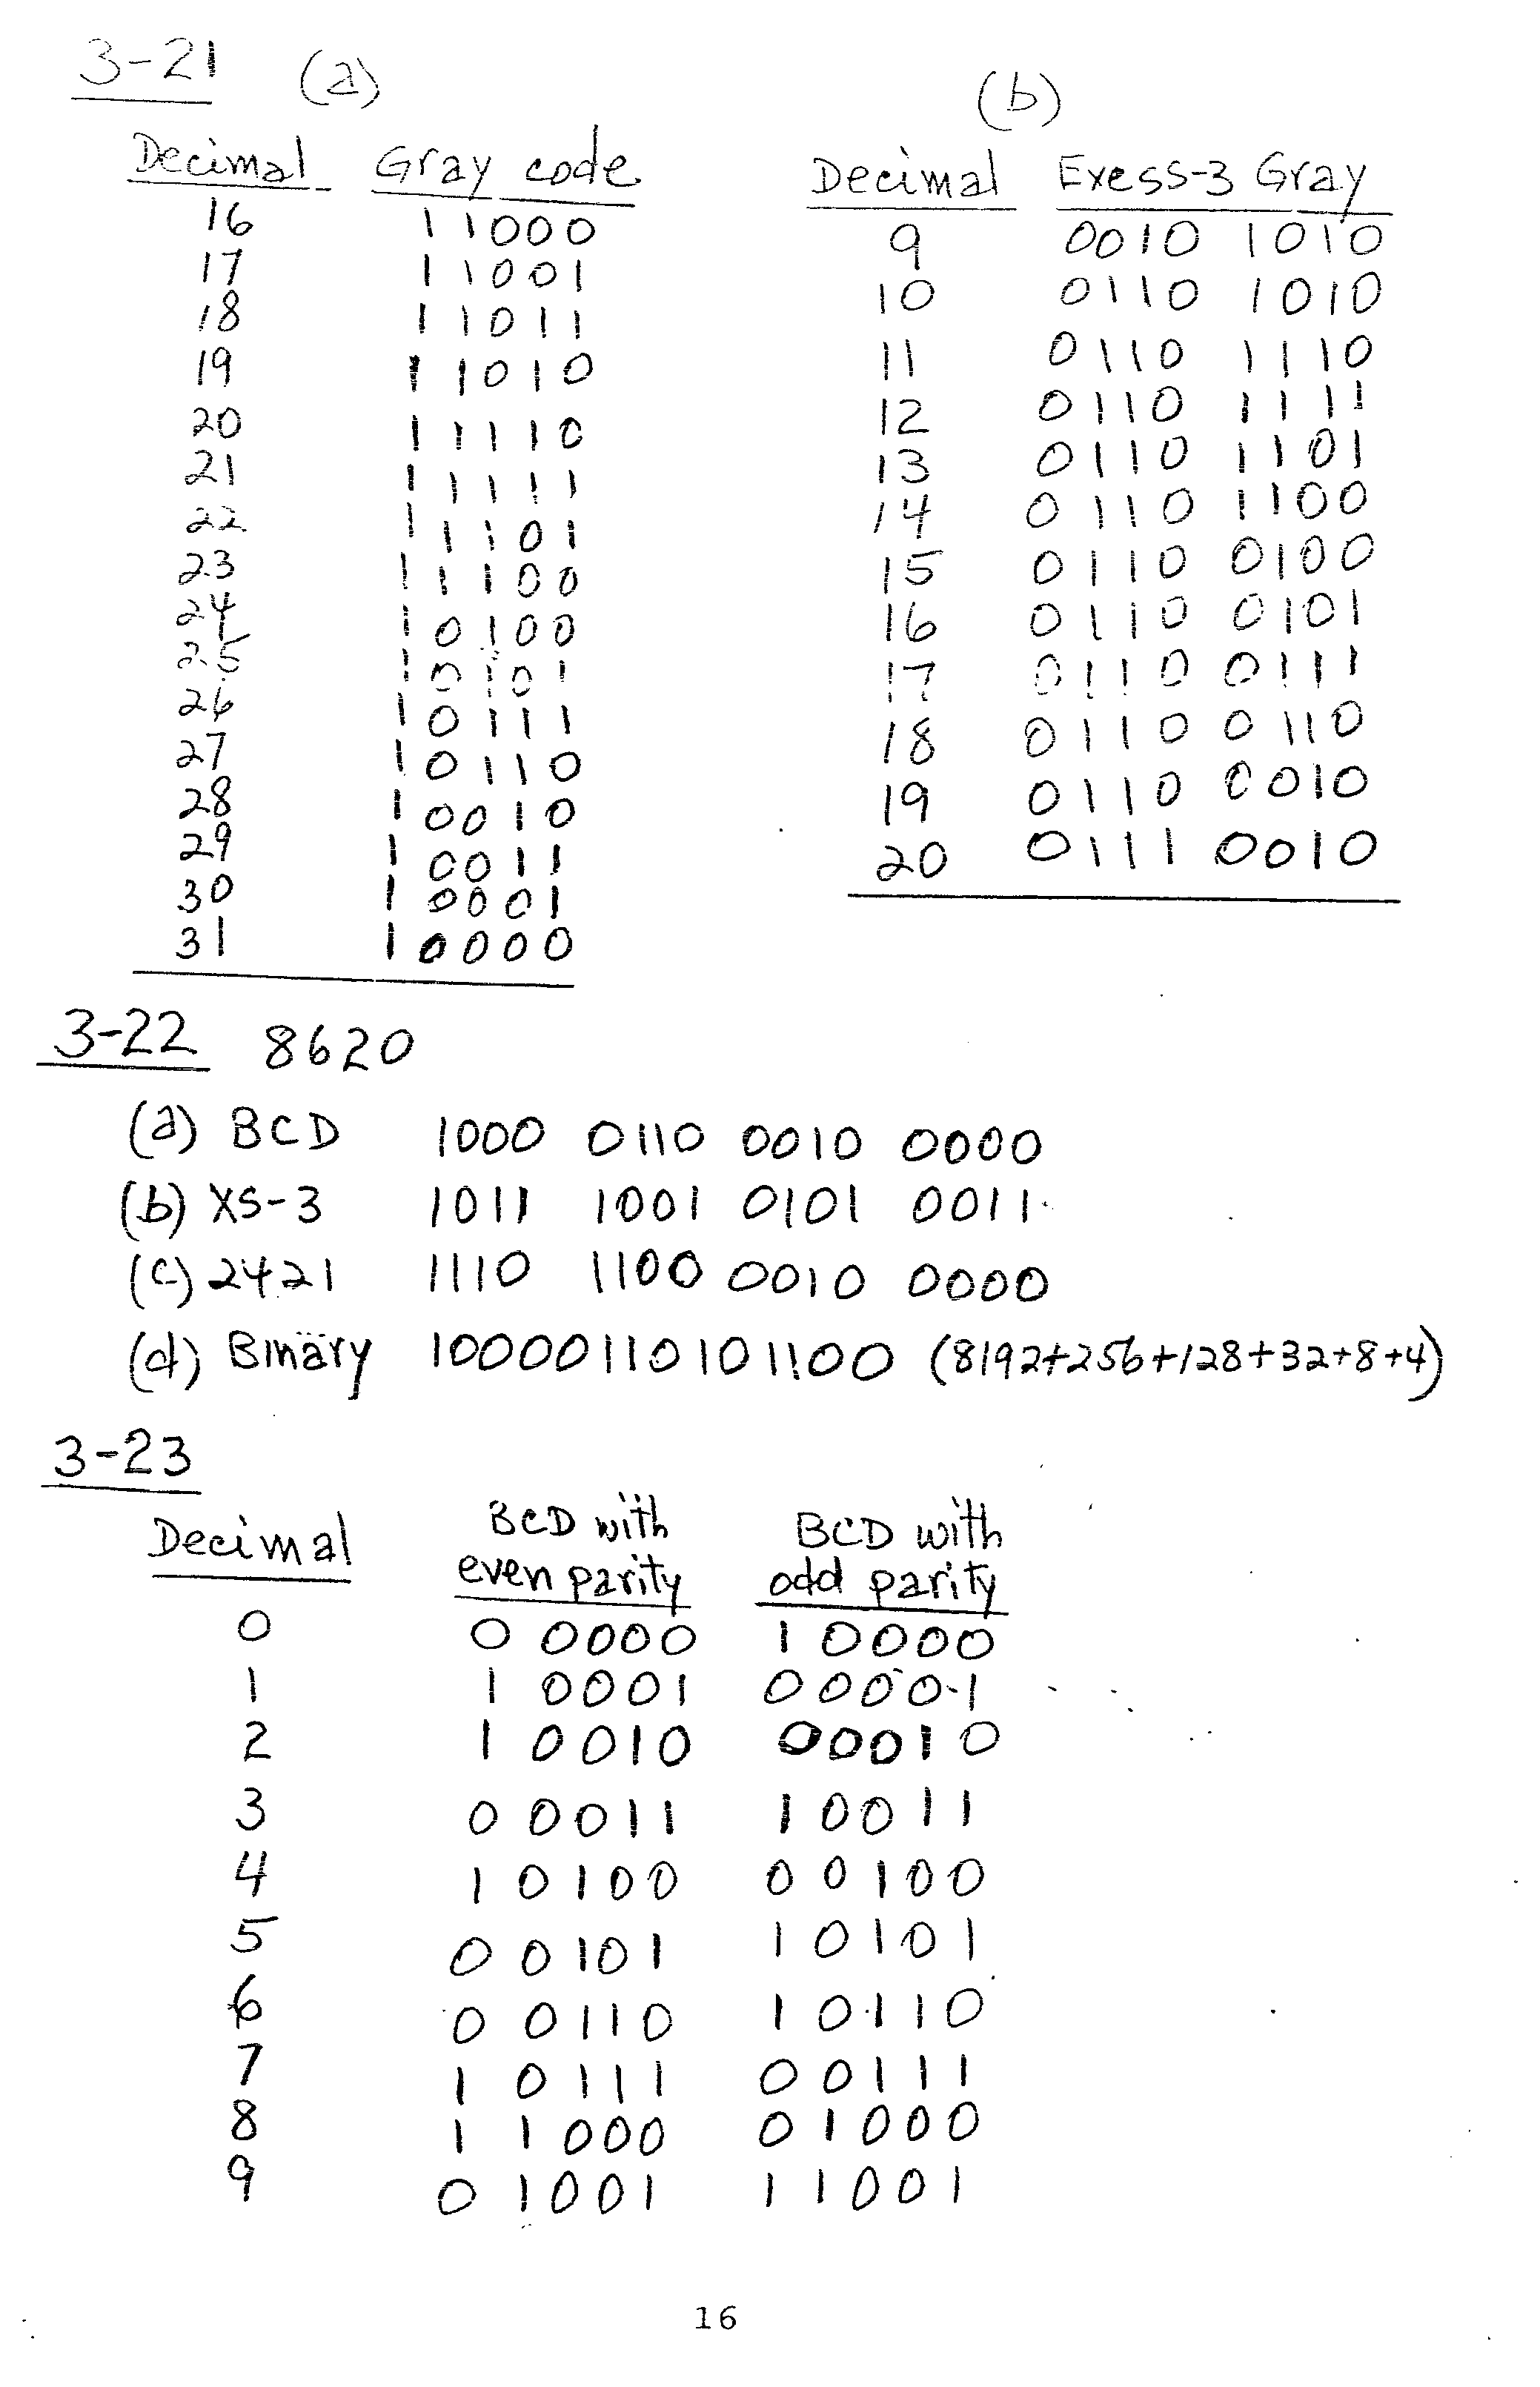 3-21 (a)
Decimal Gray code
16 11000
17 11001
18 11011
19 11010
20 11110
21 11111
22 11101
23 11100
24 10100
25 10101
26 10111
27 10110
28 10010
29 10011
30 10001
31 10000
(b)
Decimal Exess-3 Gray
9 0010 1010
10 0110 1010
11 0110 1110
12 0110 1111
13 0110 1101
14 0110 1100
15 0110 0100
16 0110 0101
17 0110 0111
18 0110 0110
19 0110 0010
20 0111 0010
3-22 8620
(a) BCD 1000 0110 0010 0000
(b) XS-3 1011 1001 0101 0011
(c) 2421 1110 1100 0010 0000
(d) Binary 10000110101100 (8192+256+128+32+8+4)
3-23
Decimal BCD with even parity BCD with odd parity
0 0 0000 1 0000
1 1 0001 0 0001
2 1 0010 0 0010
3 0 0011 1 0011
4 1 0100 0 0100
5 0 0101 1 0101
6 0 0110 1 0110
7 1 0111 0 0111
8 1 1000 0 1000
9 0 1001 1 1001
16